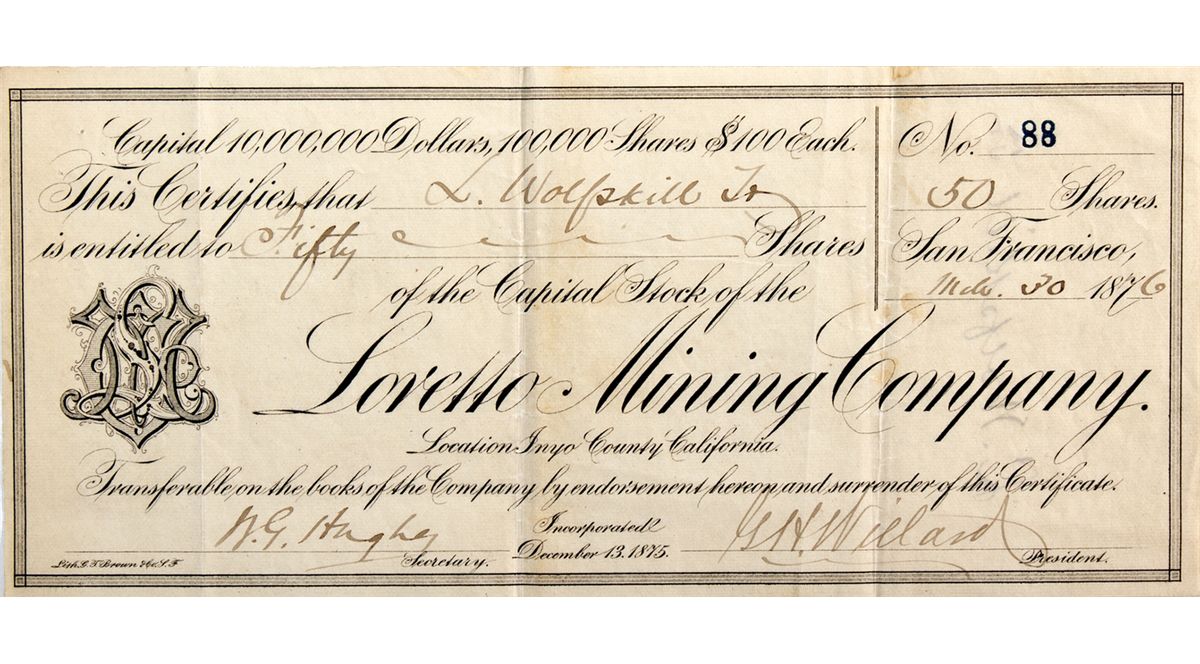 Capital 10,000,000 Dollars, 100,000 Shares $100 Each.
No. 88
This Certifies, that L. Wolfskill Tr
50 Shares.
is entitled to Fifty Shares
San Francisco,
of the Capital Stock, of the
Mch. 30 1876
Loretto Mining Company.
Location Inyo County California.
Transferable, on the books of the Company by endorsement hereon, and surrender of this Certificate.
W. G. Hughes
Secretary.
Incorporated
December 13. 1875.
G H. Willard
President.
Lith. G. T. Brown & Co. S. F.